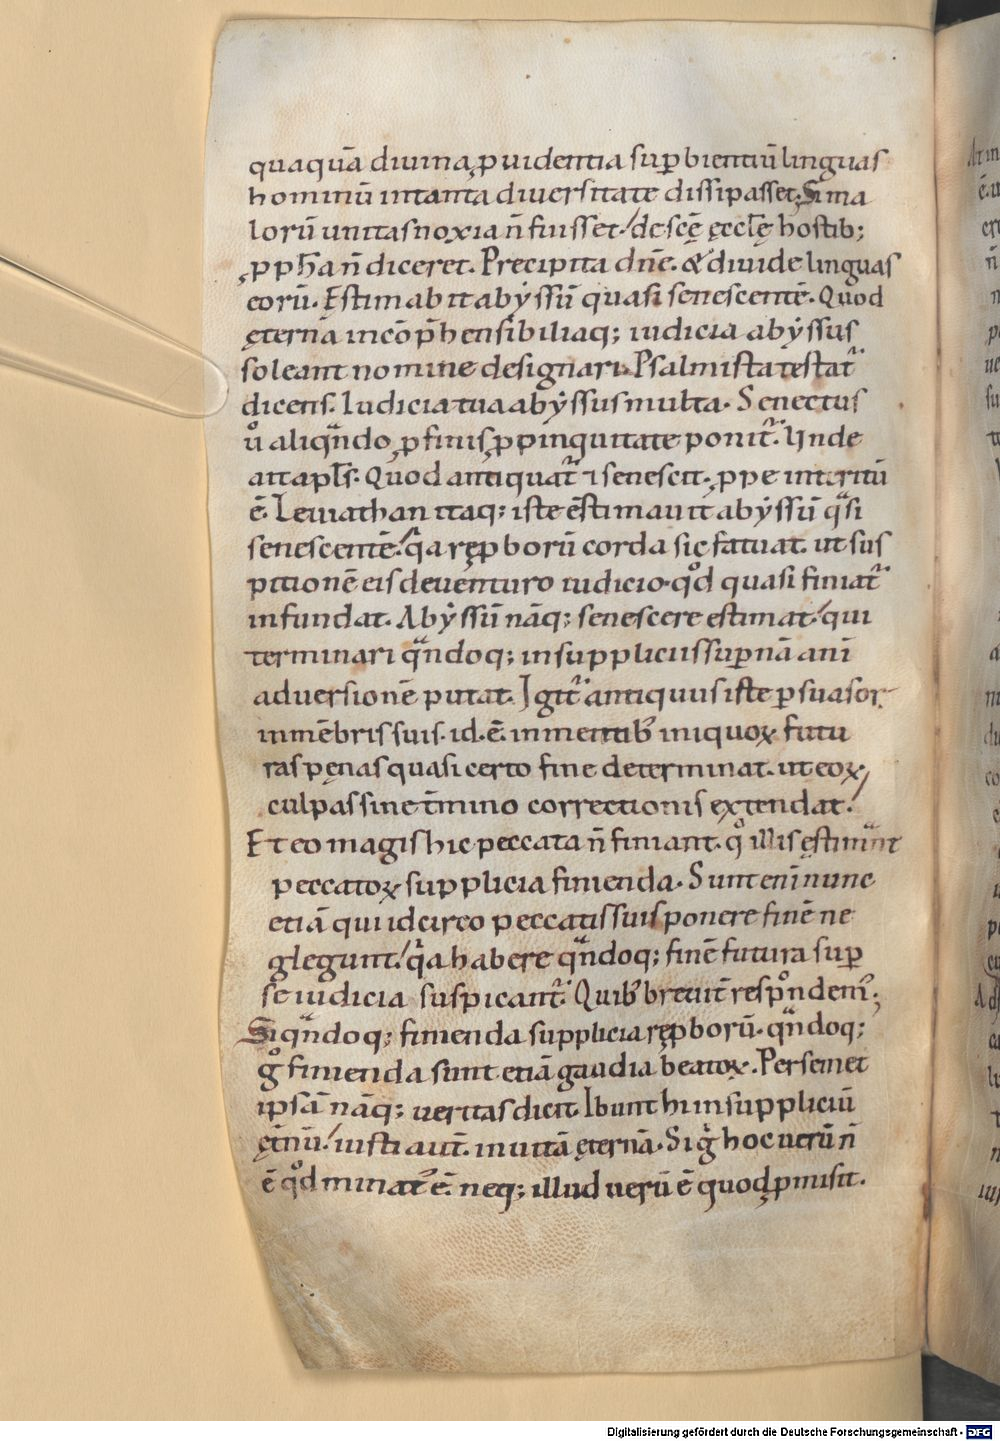 quaquā diuina ꝓuidentia suꝑbientiū linguas
hominū intanta diuersitate dissipasset; Si ma
lorū unitas noxia n̄ fuisset. de scę̄ ęccłę hostib;
ꝓph̄a n̄ diceret. Precipita dn̄e. & diuide linguas
eorū. Estimabit abẏssū quasi senescentē. Quod
ęterna incōp̄hensibiliaq; iudicia abẏssus
soleant nomine designari. Psalmista testat᷑
dicens. Iudicia tua abẏssus multa. Senectus
ů aliqͣndo ꝓ finis ꝓpinquitate ponit᷑. Unde
ait apl̄s. Quod antiquat᷑ ⁊ senescit. ꝓpe interitū
ē. Leuiathan itaq; iste ēstimauit abẏssū qͣsi
senescentē. qͥa reꝓborū corda sic fatuat. ut sus
pitionē eis deuenturo iudicio. qͦd quasi finiat᷑
infundat. Abẏssū nāq; senescere estimat. qui
terminari qͣndoq; in suppliciis suꝑnā ani
aduersionē putat. Igit᷑ antiquus iste ꝑsuasor
in mēbris suis. id. ē. in mentib᷒ iniquoꝝ futu
ras pęnas quasi certo fine determinat. ut eoꝝ
culpas sine t̄mino correctionis extendat.
Et eo magis hic peccata n̄ finiant. qͦ illis ęstimant
peccatoꝝ supplicia finienda. Sunt enī nunc
etiā qui idcirco peccatis suis ponere finē ne
glegunt. qͥa habere qͣndoq; finē futura suꝑ
se iudicia suspicant᷑. Quib᷒ breuit̄ respōndem᷒;
Si qͣndoq; finienda supplicia reꝓborū. qͣndoq;
gͦ finienda sunt etiā gaudia beatoꝝ. Per semet
ipsā nāq; ueritas dicit. Ibunt hi in suppliciū
ęt̄nū. iusti aut̄. in uitā ęternā. Si gͥ hoc uerū n̄
ē qͦd minat᷑ ē. neq; illud uerū ē quod ꝓmisit.
Digitalisierung gefördert durch die Deutsche Forschungsgemeinschaft - DFG